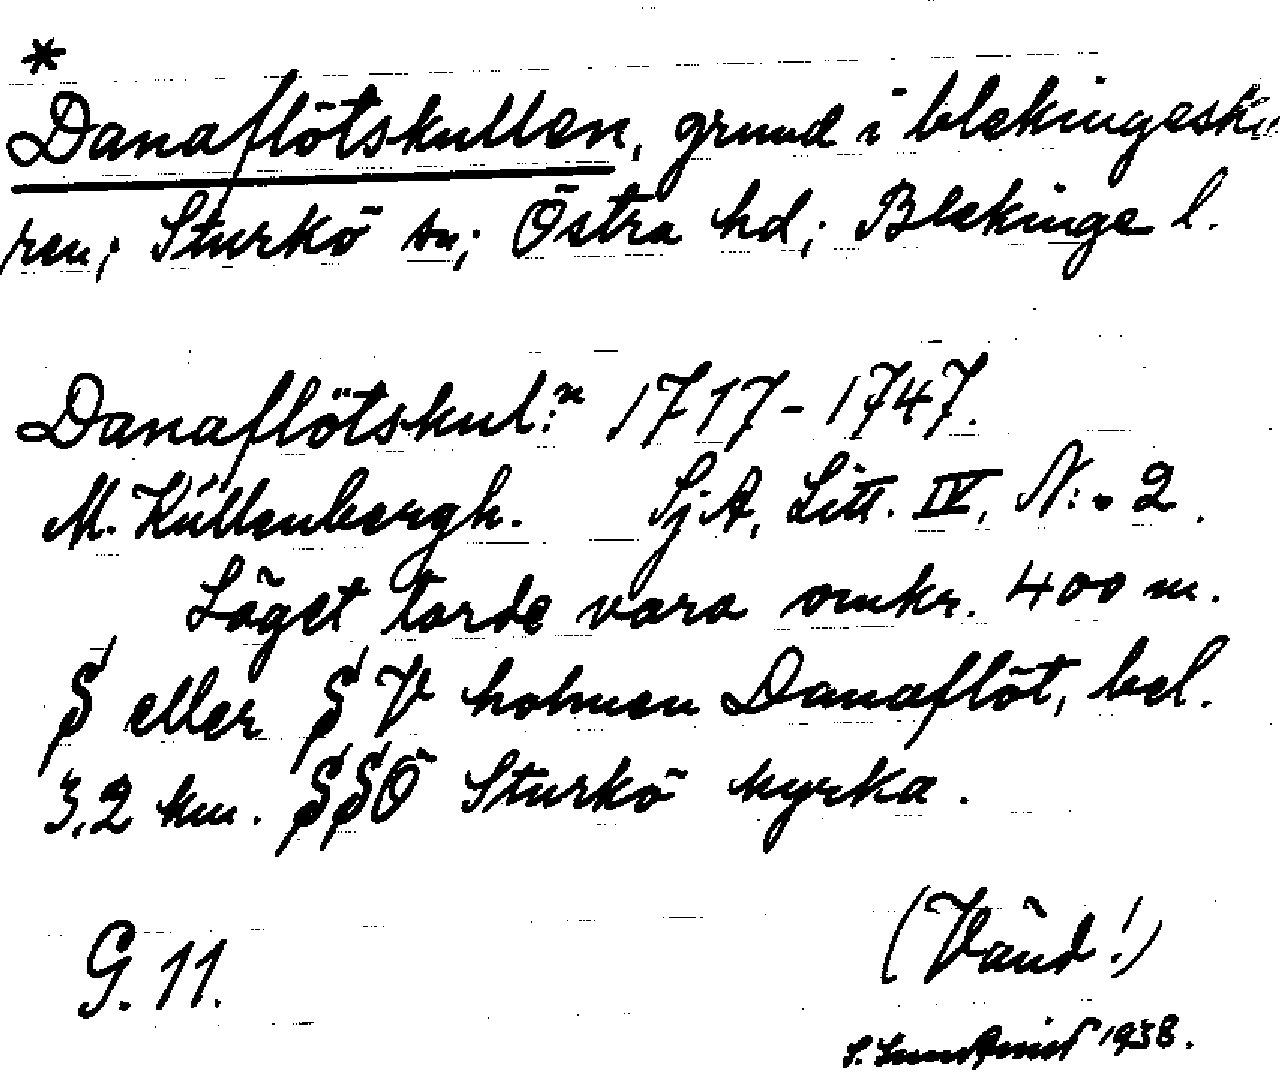 *
Danaflötskullen, grund i blekingeskä
ren; Sturkö sn; Östra hd; Blekinge l.
Danaflötskul:n 1717-1747.
M. Küllenbergh. SjA, Litt. IV, N:o 2.
Läget torde vara omkr. 400 m.
S eller SV holmen Danaflöt, bel.
3,2 km. SSÖ Sturkö kyrka.
G. 11. (Vänd!)
1938.